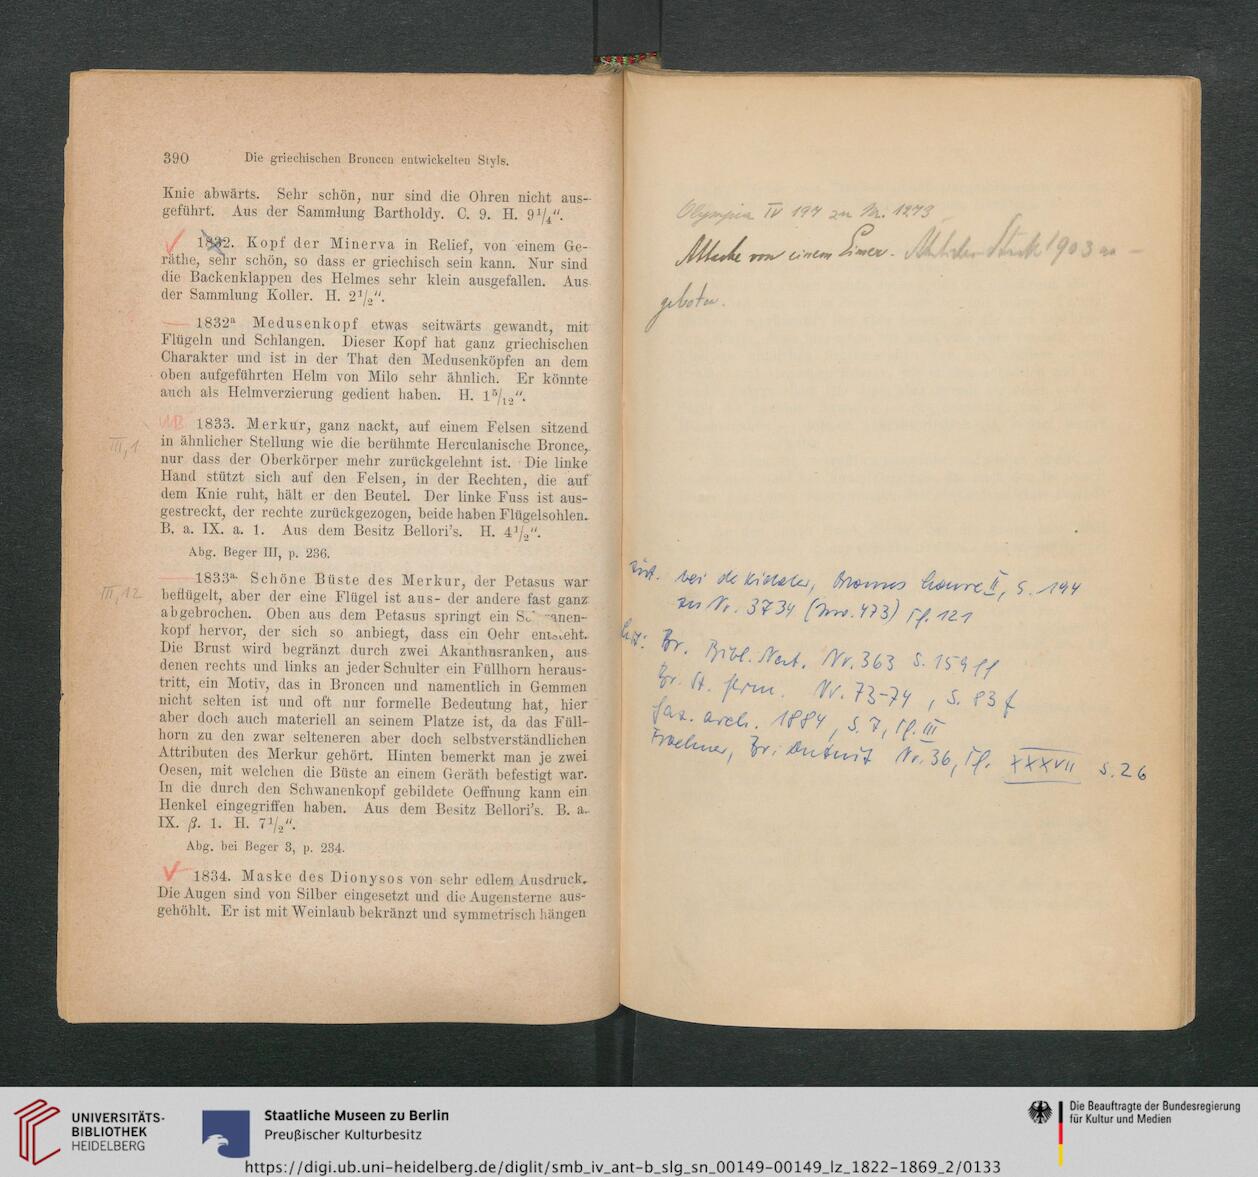 390 Die griechischen Broncen entwickelten Styls.
Knie abwärts. Sehr schön, nur sind die Ohren nicht aus-
geführt. Aus der Sammlung Bartholdy. C. 9. H. 9¹/₄".
1832. Kopf der Minerva in Relief, von einem Ge-
räthe, sehr schön, so dass er griechisch sein kann. Nur sind
die Backenklappen des Helmes sehr klein ausgefallen. Aus
der Sammlung Koller. H. 2¹/₂".
1832ᵃ Medusenkopf etwas seitwärts gewandt, mit
Flügeln und Schlangen. Dieser Kopf hat ganz griechischen
Charakter und ist in der That den Medusenköpfen an dem
oben aufgeführten Helm von Milo sehr ähnlich. Er könnte
auch als Helmverzierung gedient haben. H. 1⁵/₁₂".
1833. Merkur, ganz nackt, auf einem Felsen sitzend
III,1
in ähnlicher Stellung wie die berühmte Herculanische Bronce,
nur dass der Oberkörper mehr zurückgelehnt ist. Die linke
Hand stützt sich auf den Felsen, in der Rechten, die auf
dem Knie ruht, hält er den Beutel. Der linke Fuss ist aus-
gestreckt, der rechte zurückgezogen, beide haben Flügelsohlen.
B. a. IX. a. 1. Aus dem Besitz Bellori's. H. 4¹/₂".
Abg. Beger III, p. 236.
1833ᵃ· Schöne Büste des Merkur, der Petasus war
III,12
beflügelt, aber der eine Flügel ist aus- der andere fast ganz
abgebrochen. Oben aus dem Petasus springt ein
kopf hervor, der sich so anbiegt, dass ein Oehr entsteht.
Die Brust wird begränzt durch zwei Akanthusranken, aus
denen rechts und links an jeder Schulter ein Füllhorn heraus-
tritt, ein Motiv, das in Broncen und namentlich in Gemmen
nicht selten ist und oft nur formelle Bedeutung hat, hier
aber doch auch materiell an seinem Platze ist, da das Füll-
horn zu den zwar selteneren aber doch selbstverständlichen
Attributen des Merkur gehört. Hinten bemerkt man je zwei
Oesen, mit welchen die Büste an einem Geräth befestigt war.
In die durch den Schwanenkopf gebildete Oeffnung kann ein
Henkel eingegriffen haben. Aus dem Besitz Bellori's. B. a.
IX. β. 1. H. 7¹/₂".
Abg. bei Beger 3, p. 234.
1834. Maske des Dionysos von sehr edlem Ausdruck.
Die Augen sind von Silber eingesetzt und die Augensterne aus-
gehöhlt. Er ist mit Weinlaub bekränzt und symmetrisch hängen
Olympia IV 197 zu Nr. 1273
von einem Eimer. 1903 an-
geboten.
bei de Ridder, Bronzes Louvre II, S. 194
zu Nr. 3734 (Inv. 473) Tf. 121
Br. Bibl. Nat. Nr. 363 S. 159 ff
Br. St. Germ. Nr. 73-74, S. 83 f
Gaz. arch. 1884, S. 7, Tf. III
Froehner, Nr. 36, Tf. XXXVII S. 26
UNIVERSITÄTS-
BIBLIOTHEK
HEIDELBERG
Staatliche Museen zu Berlin
Preußischer Kulturbesitz
Die Beauftragte der Bundesregierung
für Kultur und Medien
https://digi.ub.uni-heidelberg.de/diglit/smb_iv_ant-b_slg_sn_00149-00149_lz_1822-1869_2/0133